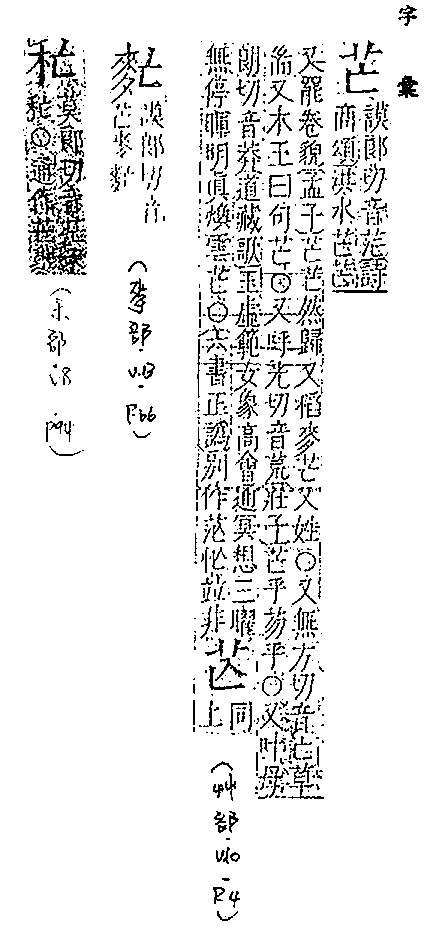 字彙
芒 謨郎切音茫詩
商頌洪水芒芒
又罷卷貌孟子芒芒然歸又稻麥芒又姓○又無方切音亡草
耑又木王曰句芒○又呼光切音荒莊子芒乎芴乎○又叶母
朗切音莽道藏歌玉虛範女象高會通冥想三曜
無停暉明真煥雲芒○六書正譌別作茫忙竝非 同上
(艸部-V10-P.4)
謨郎切音
芒麥
(麥部-V.13-P66)
莫郎切音茫
○通作芒
(禾部 P94)